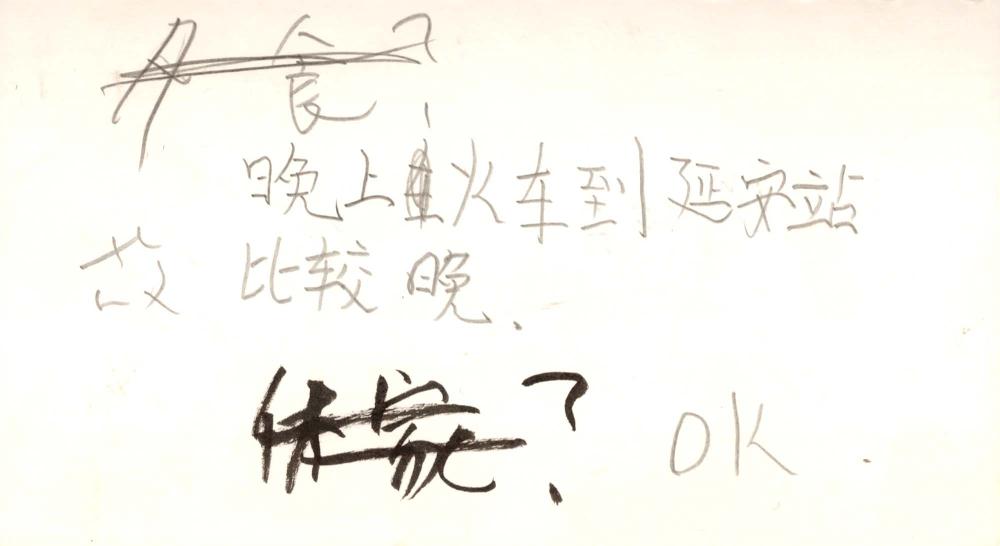 夕食?
晚上火车到延安站
故 比较晚.
休家? OK.